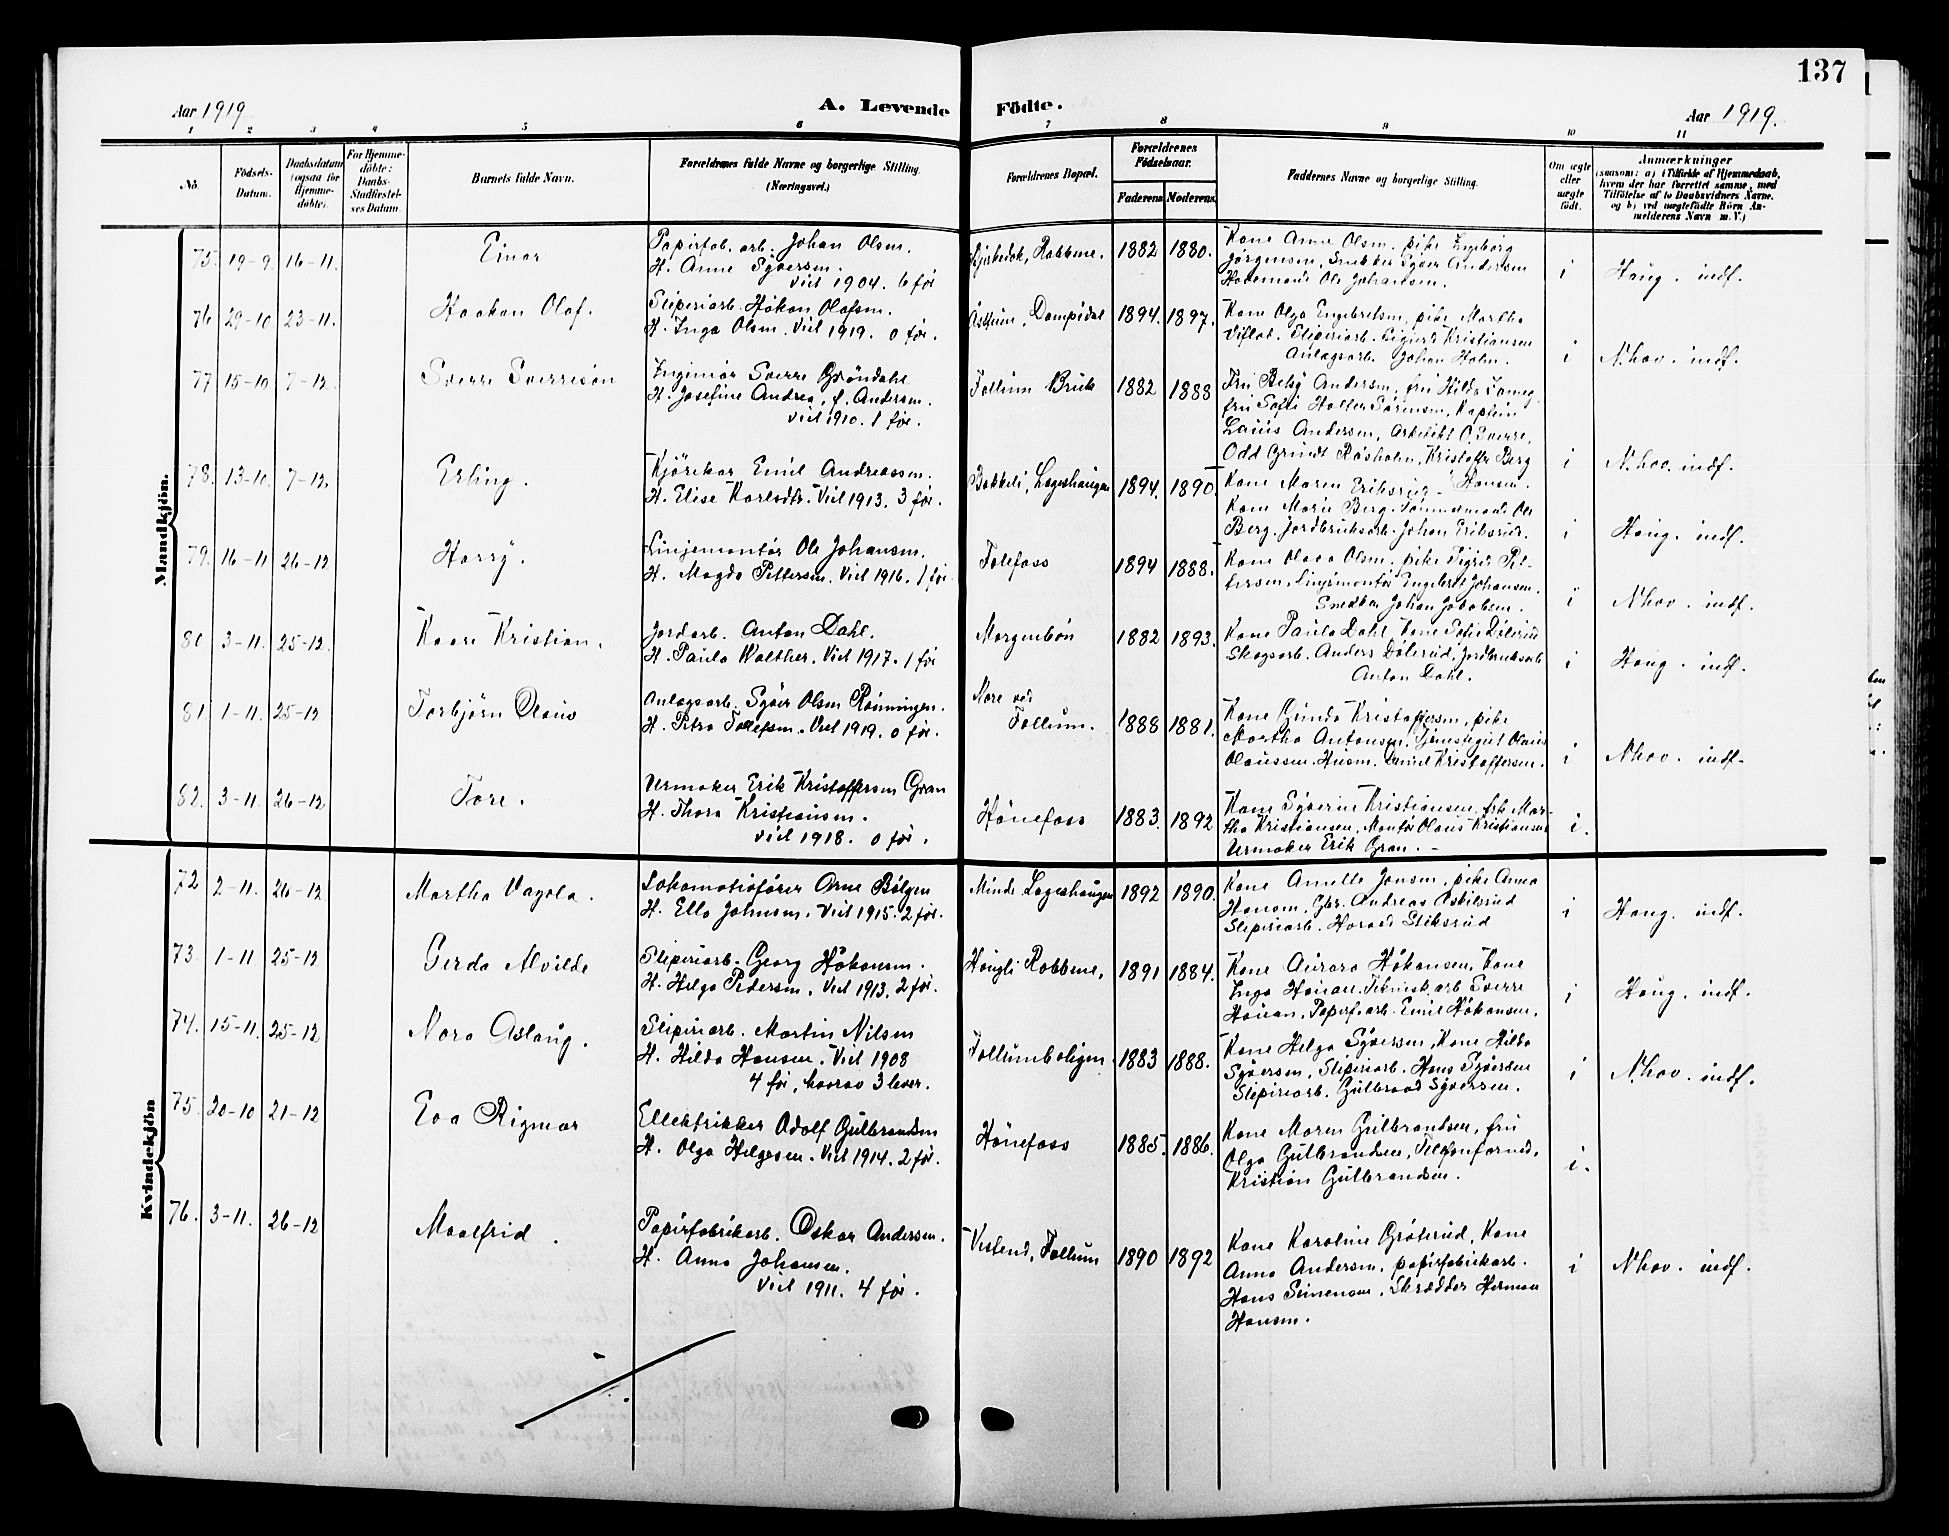 137
Aar 1919.
A. Levende Födte.
Aar 1919.
1 2 3 4 5 6 7 8 9 10 11
No.
Födsels-
Datum.
Daabsdatum
(ogsaa for
Hjemme-
döbte).
For Hjemme-
döbte:
Daabs-
Stadfæstel-
ses Datum.
Barnets fulde Navn.
Forældrenes fulde Navne og borgerlige Stilling.
(Næringsvei.)
Forældrenes Bopæl.
Forældrenes
Födselsaar.
Faderens
Moderens
Faddernes Navne og borgerlige Stilling.
Om ægte
eller
uægte
födt.
Anmærkninger
(saasom: a) i Tilfælde af Hjemmedaab,
hvem der har forrettet samme, med
Tilföielse af to Daabsvidners Navne.
og b) ved uægtefödte Börn An-
melderens Navn m. V.)
Mandkjön.
75. 19-9 16-11. Einar
Papirfab. arb. Johan Olsen.
H. Anne Syversen.
Viet 1904. 6 før
Robbene. 1882 1880.
Kone Anne Olsen. pike Ingeborg
Jørgensen, Snekker Syver Andersen
Ole Johansen.
i Haug. indf.
76 29-10 23-11. Haakon Olaf.
Sliperiarb. Håkon Olafsen.
H. Inga Olsen. Viet 1919. 0 før.
1894. 1897.
Kone Olga Engebretsen, pike Martha
Viflat. Sliperiarb. Sigurd Kristiansen
Anlagsarb. Johan Holm.
i N.hov. indf.
77 15-10 7-12. Sverre Sverresøn
Ingeniør Sverre Grøndahl
H. Josefine Andrea, f. Andersen.
Viet 1910. 1 før.
Follum Bruk 1882 1888
Fru Betsy Andersen, fru Hilda
fru Sofie Holter Sørensen, Kaptein
Andersen, Arkitekt O. Sverre,
Odd Grundt Røsholm, Kristoffer Berg
Hansen.
i N.hov. indf.
78. 13-10 7-12. Erling.
Kjørekar Emil Andreassen.
H. Elise Karlsdtr. Viet 1913. 3 før.
Bakkeli, Lageshaugen 1894. 1890.
Kone Maren Eriksrud
Kone Marie Berg. Tømmermand Ole
Berg. Jordbruksarb. Johan Eriksrud.
i Haug. indf.
79. 16-11 26-12 Harry.
Linjemontør Ole Johansen.
H. Magda Pettersen. Viet 1916. 1 før.
Folefoss 1894 1888.
Kone Olava Olsen. pike Sigrid Pet-
tersen, Linjemontør Engebret Johansen.
Snekker Johan Jakobsen.
i N.hov. indf.
80 3-11. 25-12. Kaare Kristian.
Jordarb. Anton Dahl.
H. Paula Walther. Viet 1917. 1 før
Morgenbøn 1882 1893.
Kone Paula Dahl, Kone Sofie Dølerud
Skogsarb. Anders Dølerud, Jordbruksarb
Anton Dahl.
i Haug. indf.
81. 1-11. 25-12 Torbjørn Olaus
Anlagsarb. Syver Olsen Rønningen.
H. Petra Tollefsen. Viet 1919. 0 før.
More ved
Follum. 1888 1881.
Kone Gunda Kristoffersen, pike
Martha Antonsen. Tjenestegut Olaus
Olaussen. Husm. Daniel Kristoffersen.
i N.hov. indf.
82. 3-11. 26-12 Tore.
Urmaker Erik Kristoffersen Gran
H. Thora Kristiansen.
Viet 1918. 0 før.
Hønefoss 1883. 1892
Kone Syverine Kristiansen, frk Mar-
tha Kristiansen, Montør Olaus Kristiansen
Urmaker Erik Gran.
i.
Kvindekjön
72 2-11. 26-12 Martha Vagola.
Lokomotivfører Arne Bølgen
H. Ella Johnsen. Viet 1915. 2 før.
Minde Lageshaugen 1892 1890.
Kone Amette Jonsen, pike Anna
Hansen, Gbr. Andreas Eskilsrud
Sliperiarb. Harald Sliksrud
i Haug. indf.
73. 1-11 25-12 Gerda Alvilde
Sliperiarb. Georg Håkonsen.
H. Helga Pedersen. Viet 1913. 2 før.
Haugli Robbene. 1891 1884.
Kone Aurora Håkansen, Kone
Inga Houan. Teknisk arb Sverre
Houan, Papirf. arb. Emil Håkansen.
i Haug. indf.
74. 15-11. 25-12 Nora Aslaug.
Sliperiarb. Martin Nilsen
H. Hilda Hansen. Viet 1908
4 før, hvorav 3 lever.
Follumboligen 1883 1888.
Kone Helga Syversen, Kone Hilda
Syversen, Sliperiarb. Hans Syversen
Sliperiarb. Gulbrand Syversen.
i N.hov. indf.
75. 20-10 21-12 Eva Rigmor
Ellektrikker Adolf Gulbrandsen
H. Olga Helgesen. Viet 1914. 2 før.
Hønefoss 1885. 1886.
Kone Maren Gulbrandsen, fru
Olga Gulbrandsen, Telefonformd.
Kristian Gulbrandsen.
i.
76. 3-11. 26-12 Maalfrid.
Papirfabrikarb. Oskar Andersen.
H. Anna Johansen.
Viet 1911. 4 før.
Vestend, Follum 1890 1892
Kone Karoline Grøterud, Kone
Anna Andersen, papirfabrikarb.
Hans Simensen, Skrædder Herman
Hansen.
i N.hov. indf.